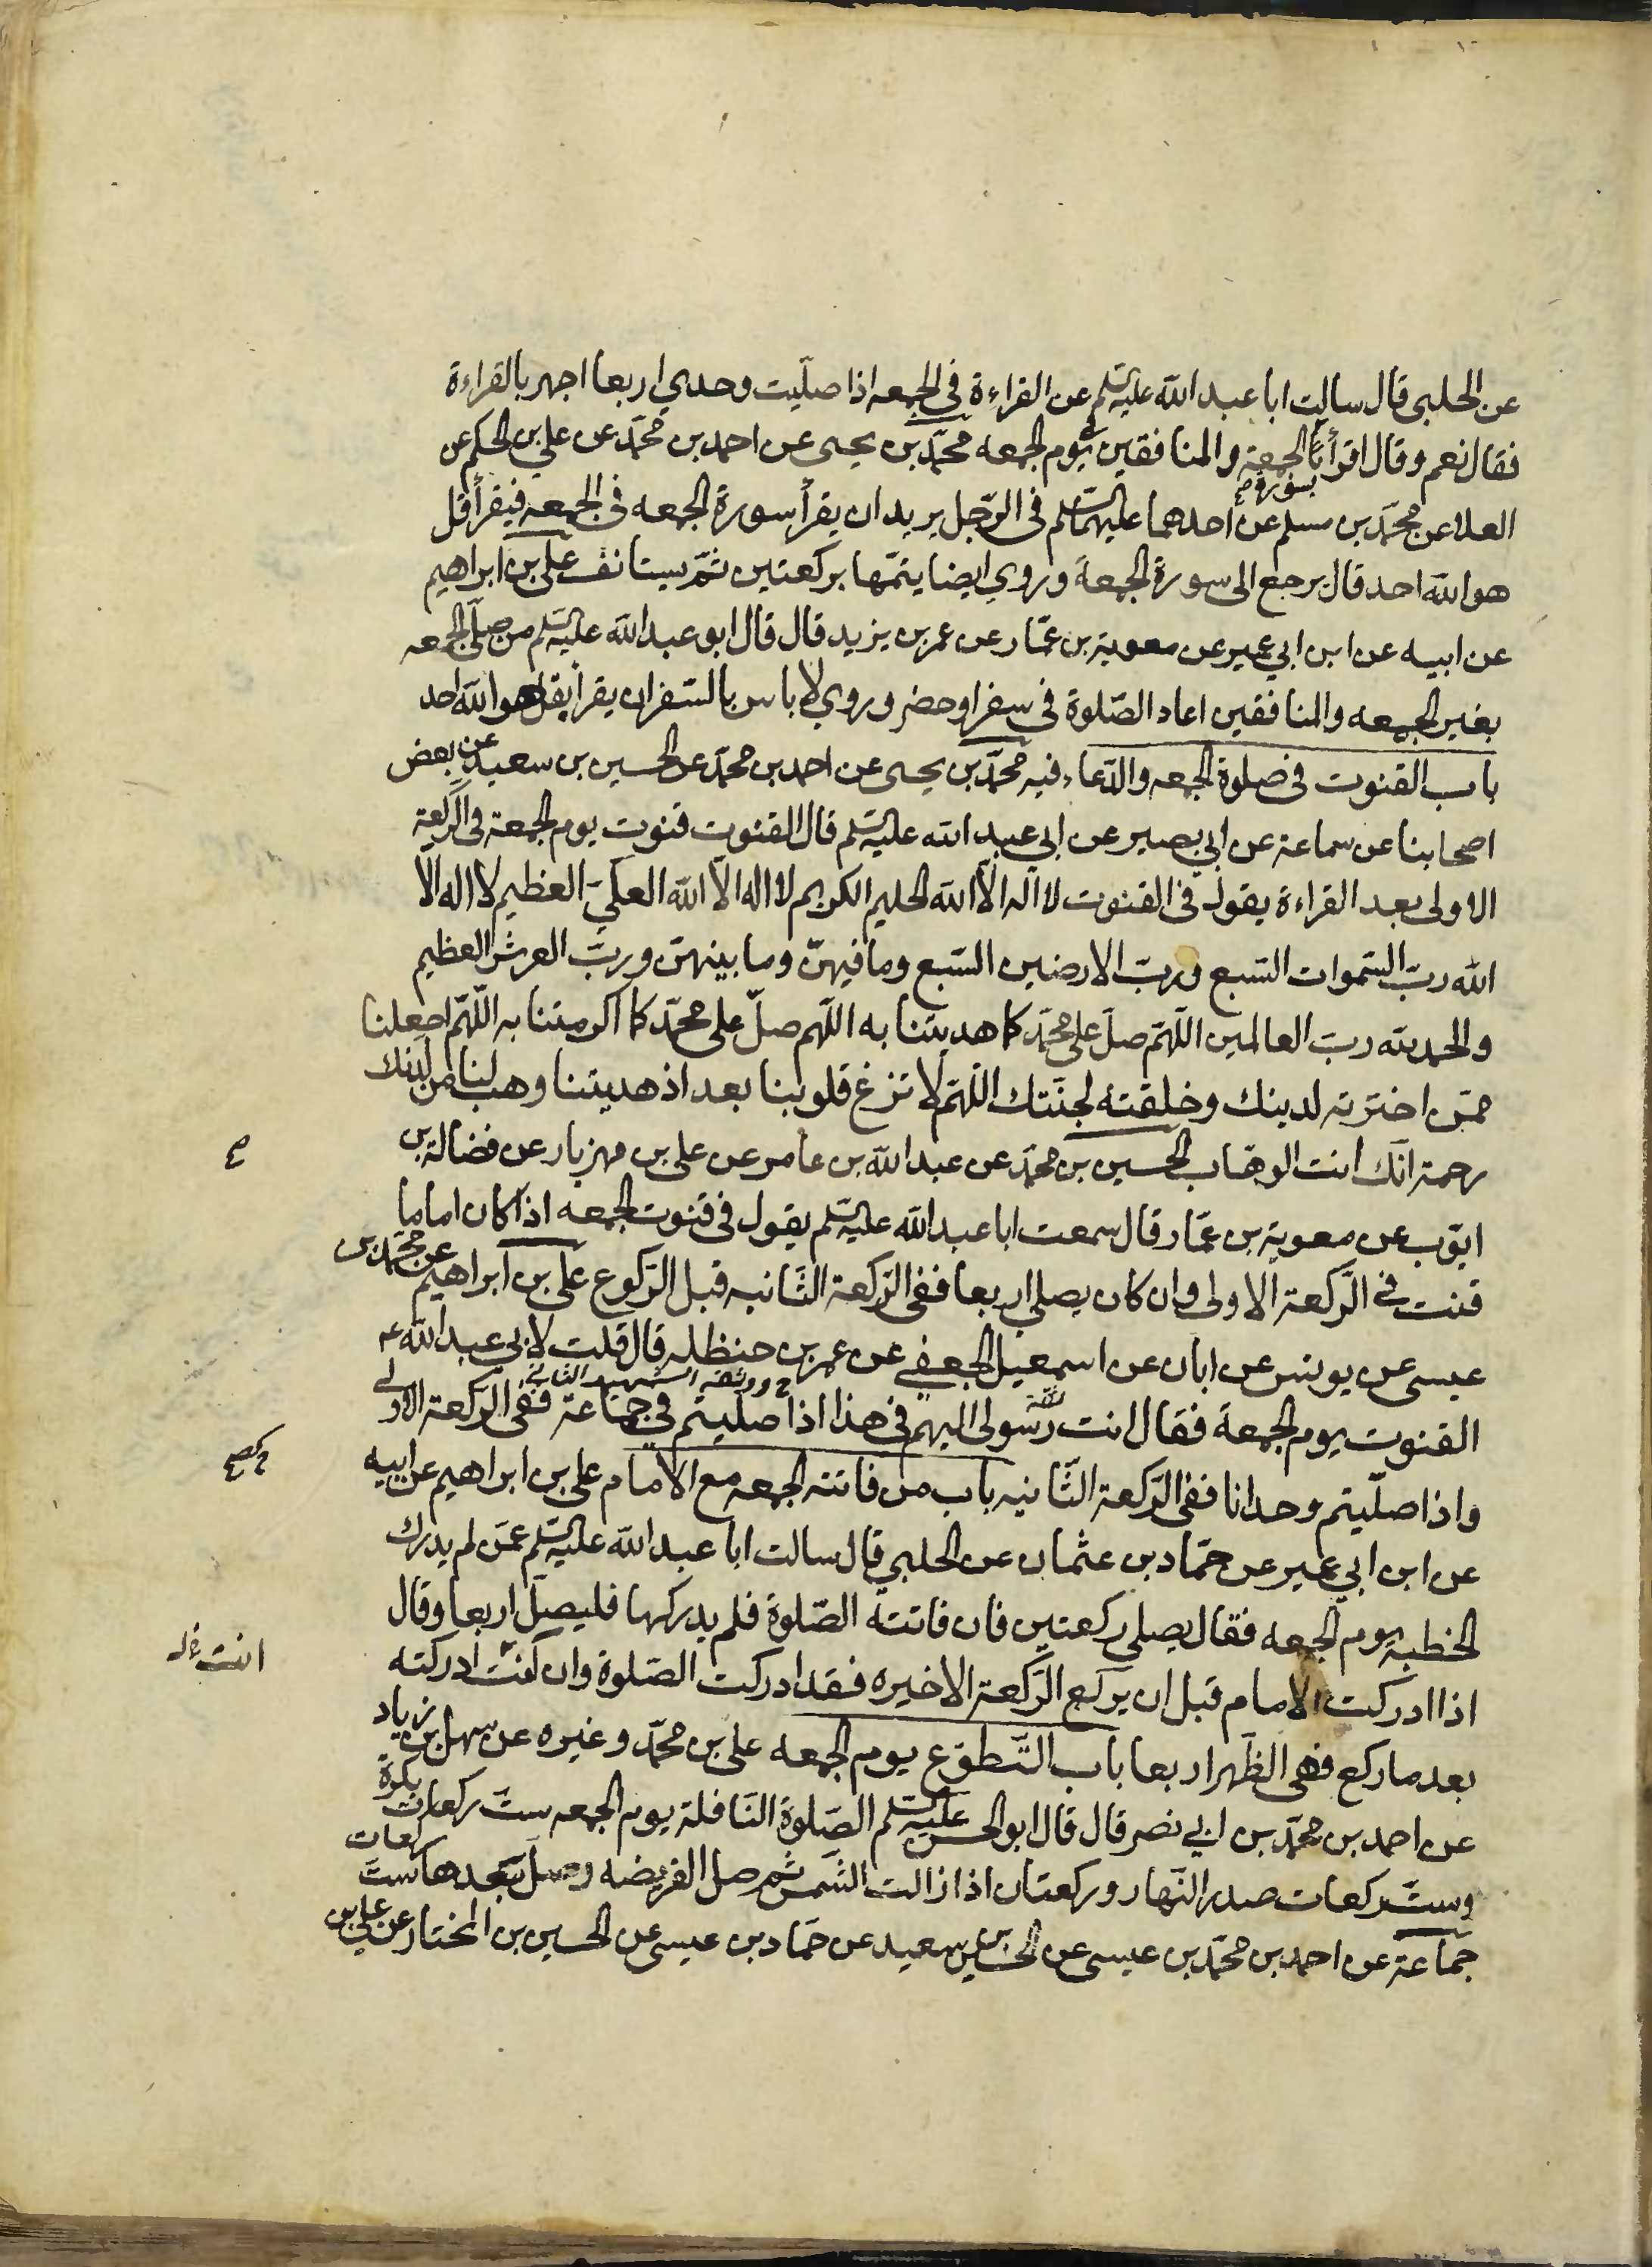 عن الحلبي قال سالت ابا عبد الله عليه السلم عن القراءة في الجمعه اذا صليت وحدي اربعا اجهر بالقراءة
فقال نعم وقال اقرأ بسورة الجمعة والمنافقين في يوم الجمعه محمّد بن يحيى عن احمد بن محمّد عن علي بن الحكم عن
العلا عن محمّد بن مسلم عن احدهما عليهما السلم في الرّجل يريد ان يقرأ سورة الجمعه في الجمعه فيقرأ قل
هو الله احد قال يرجع الى سورة الجمعة وروي ايضا يتمّها بركعتين ثمّ يستانف علي بن ابراهيم
عن ابيه عن ابن ابي عمير عن معوية بن عمّار عن عمر بن يزيد قال قال ابو عبد الله عليه السلم من صلّى الجمعه
بغير الجمعه والمنافقين اعاد الصّلوة في سفر او حضر وروي لا باس بالسّفر ان يقرأ بقل هو الله احد
باب القنوت في صلوة الجمعه والدّعاء فيه محمّد بن يحيى عن احمد بن محمّد عن الحسين بن سعيد عن بعض
اصحابنا عن سماعة عن ابي بصير عن ابي عبد الله عليه السلم قال القنوت قنوت يوم الجمعة في الركعة
الاولى بعد القراءة يقول في القنوت لا اله الّا الله الحليم الكريم لا اله الّا الله العليّ العظيم لا اله الا
الله ربّ السّموات السّبع وربّ الارضين السّبع وما فيهنّ وما بينهنّ وربّ العرش العظيم
والحمد لله ربّ العالمين اللّهمّ صلّ على محمّد كما هديتنا به اللّهم صلّ على محمّد كما اكرمتنا به اللّهمّ اجعلنا
ممّن اخترته لدينك وخلقته لجنّتك اللّهمّ لا تزغ قلوبنا بعد اذ هديتنا وهب لنا من لدنك
رحمة انّك انت الوهّاب الحسين بن محمّد عن عبد الله بن عامر عن علي بن مهزيار عن فضالة بن
ايّوب عن معوية بن عمّار قال سمعت ابا عبد الله عليه السلم يقول في قنوت الجمعه اذا كان اماما
قنت في الرّكعة الاولى وان كان يصلي اربعا ففي الرّكعة الثّانيه قبل الرّكوع علي بن ابراهيم عن محمّد بن
عيسى عن يونس عن ابان عن اسمعيل الجعفي عن عمر بن حنظله قال قلت لابي عبد الله ع
القنوت يوم الجمعة فقال انت رسولى اليهم في هذا اذا صليتم في جماعة ففي الرّكعة الاولى
واذا صلّيتم وحدانا ففي الرّكعة الثّانيه باب من فاتته الجمعه مع الامام علي بن ابراهيم عن ابيه
عن ابن ابي عمير عن حمّاد بن عثمان عن الحلبي قال سالت ابا عبد الله عليه السلم عمّن لم يدرك
الخطبه يوم الجمعه فقال يصلي ركعتين فان فاتته الصّلوة فلم يدركها فليصلّ اربعا وقال
اذا ادركت الامام قبل ان يركع الرّكعة الاخيره فقد ادركت الصّلوة وان كنت ادركته
انت
بعد ما ركع فهي الظّهر اربعا باب التّطوّع يوم الجمعه علي بن محمّد وغيره عن سهل بن زياد
عن احمد بن محمّد بن ابي نصر قال قال ابو الحسن عليه السلم الصّلوة النّافلة يوم الجمعه ستّ ركعات بكرة
وستّ ركعات صدر النّهار وركعتان اذا زالت الشّمس ثم صل الفريضه وصلّ بعدها ستّ ركعات
جماعة عن احمد بن محمّد بن عيسى عن الحسين بن سعيد عن حمّاد بن عيسى عن الحسين بن المختار عن علي بن